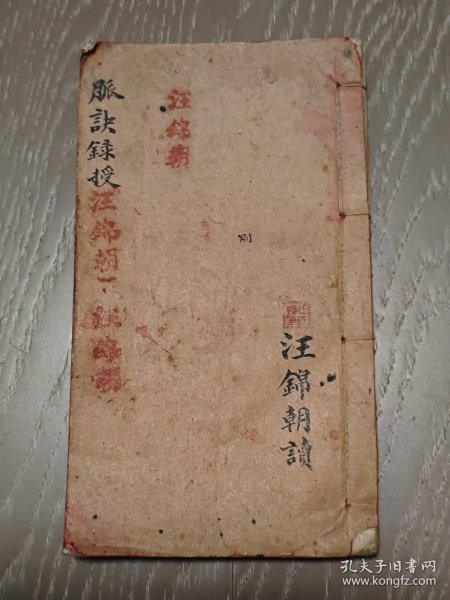 汪錦朝讀
別
汪錦朝
脈訣録授
汪錦朝
汪錦朝
孔夫子旧书网
www.kongfz.com